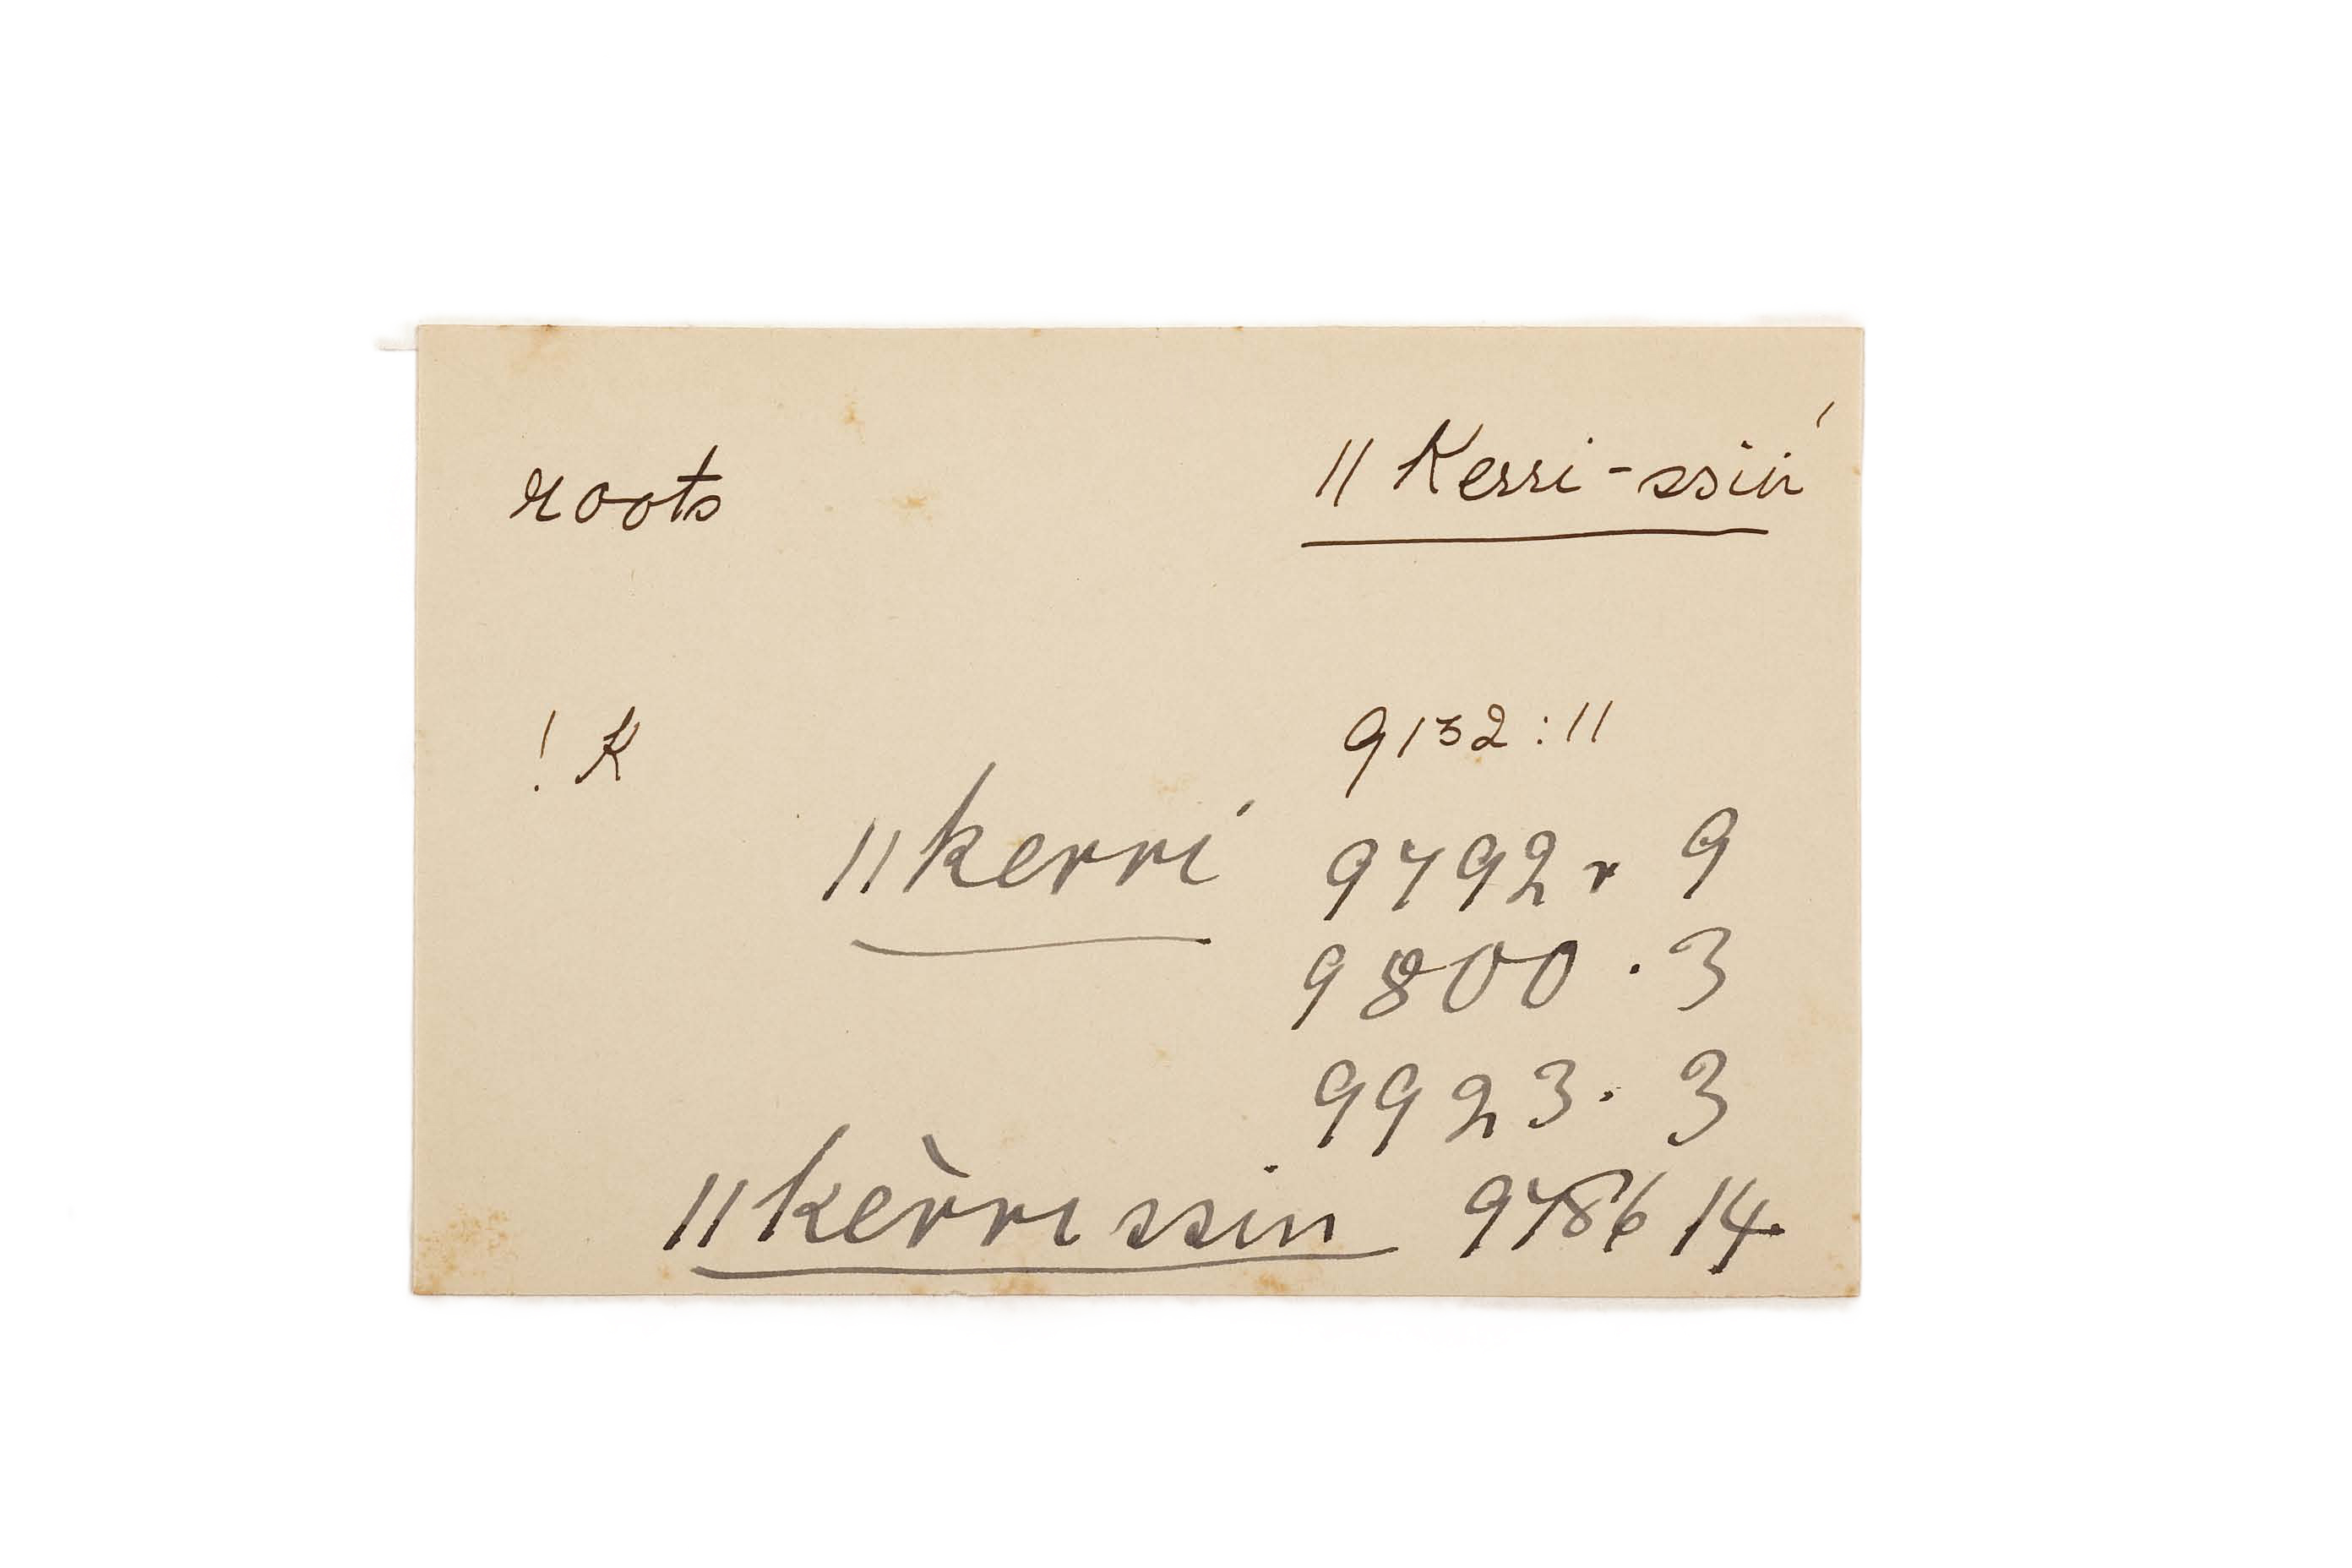 roots ||Kerri-ssiń
!K 9132:11
||kerri 9792 r 9
9800 . 3
9923 . 3
||kèrrissin 9786 14.